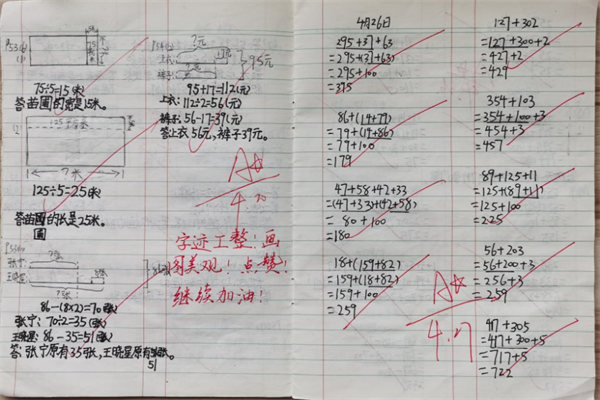 P53(6)
(1)
75÷5=15(米)
答苗圃的宽是15米。
(2)
?米
125÷5=25(米)
答苗圃的长是25米。
圃
张宁:
王晓星:
86-(8×2)=70(张)
张宁: 70÷2=35(张)
王晓星: 86-35=51(张)
答: 张宁原有35张,王晓星原有51张。
?元
上衣:
95元
95+17=112(元)
上衣: 112÷2=56(元)
裤子: 56-17=39(元)
答上衣56元,裤子39元。
字迹工整!画
图美观!点赞!
继续加油!
4月26日
295+37+63
=295+(37+63)
=295+100
=395
86+(14+79)
=79+(14+86)
=79+100
=179
47+58+42+33
=(47+33)+(42+58)
=80+100
=180
184+(159+82)
=159+(18+82)
=159+100
=259
127+302
=127+300+2
=427+2
=429
354+103
=354+100+3
=454+3
=457
89+125+11
=125+(89+11)
=125+100
=225
56+203
=56+200+3
=256+3
=259
417+305
=417+300+5
=717+5
=722